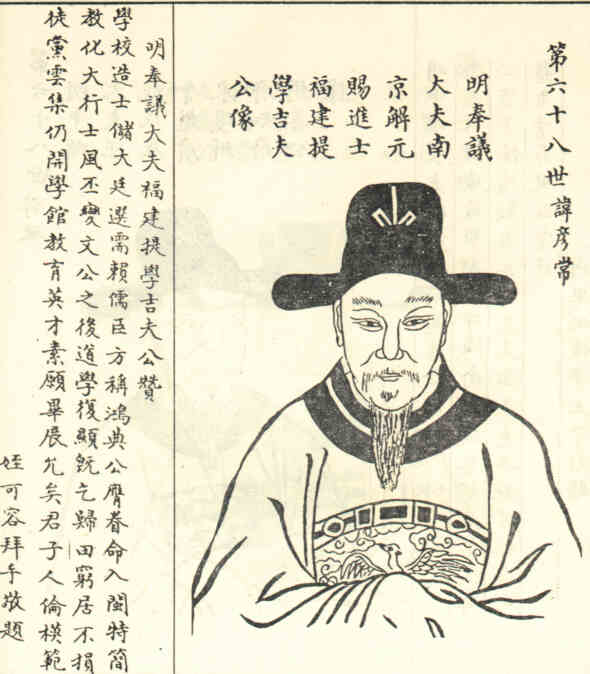 第六十八世諱彦常
明奉議
大夫南
京解元
賜進士
福建提
學吉夫
公像
明奉議大夫福建提學吉夫公贊
學校造士儲大廷選需賴儒臣方稱鴻典公膺眷命入閩特簡
教化大行士風丕變文公之後道學復顯既乞歸田窮居不損
徒黨雲集仍開學館教育英才素願畢展允矣君子人倫模範
姪可容拜手敬題